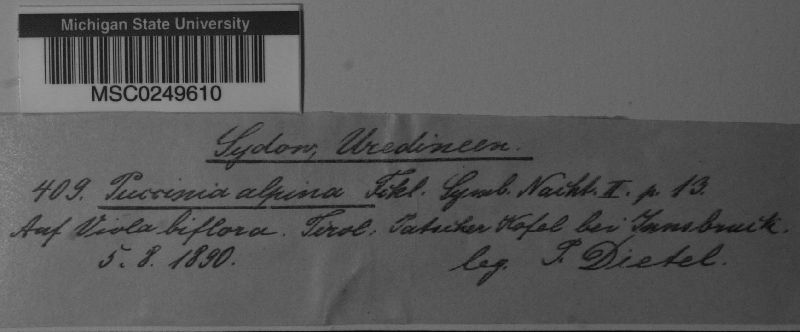 Michigan State University
MSC0249610
Sydow, Uredineen.
409. Puccinia alpina Fckl. Symb. Nacht. II. p. 13.
Auf Viola biflora. Tirol: Patscher Kofel bei Innsbruck.
5. 8. 1890. leg. P. Dietel.